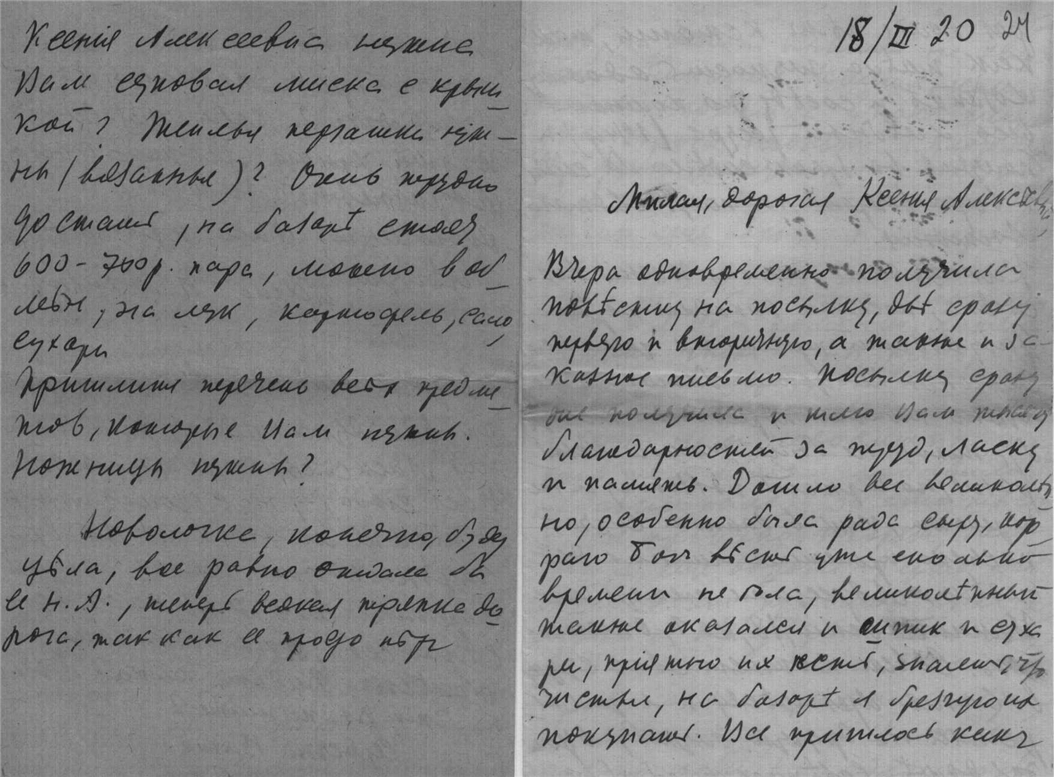 Ксенія Алексеевна нужна
Вам суповая миска с крыш-
кой? Жилья перчатки нуж-
ны (вязанные)? Очень трудно
достать, на базарѣ стоят
600-700 р. пара, можно в об
мѣн, на лук, картофель, сало,
сухари
Пришлите перечень всѣх предме-
тов, которые Вам нужны.
Ножницы нужны?
Наволочка, конечно, буде
цѣла, все равно отдала бы
ее Н.А., теперь всякая тряпка до
рога, так как ее продо
18/III 20 24
Милая, дорогая Ксенія Алексѣевна,
Вчера одновременно получила
повѣстку на посылку, двѣ сразу
первую и вторичную, а также и за-
казное письмо. Посылку сразу
же получила и шлю Вам тысячу
благодарностей за труд, ласку
и память. Дошло все великолѣп
но, особенно была рада сыру, кот
раго Бог вѣсть уже сколько
времени не ѣла, великолѣпный
также оказался и шпик и суха
ри, приятно их ѣсть, знаешь, что
чистые, на базарѣ я брезгую их
покупать. Все пришлось кста